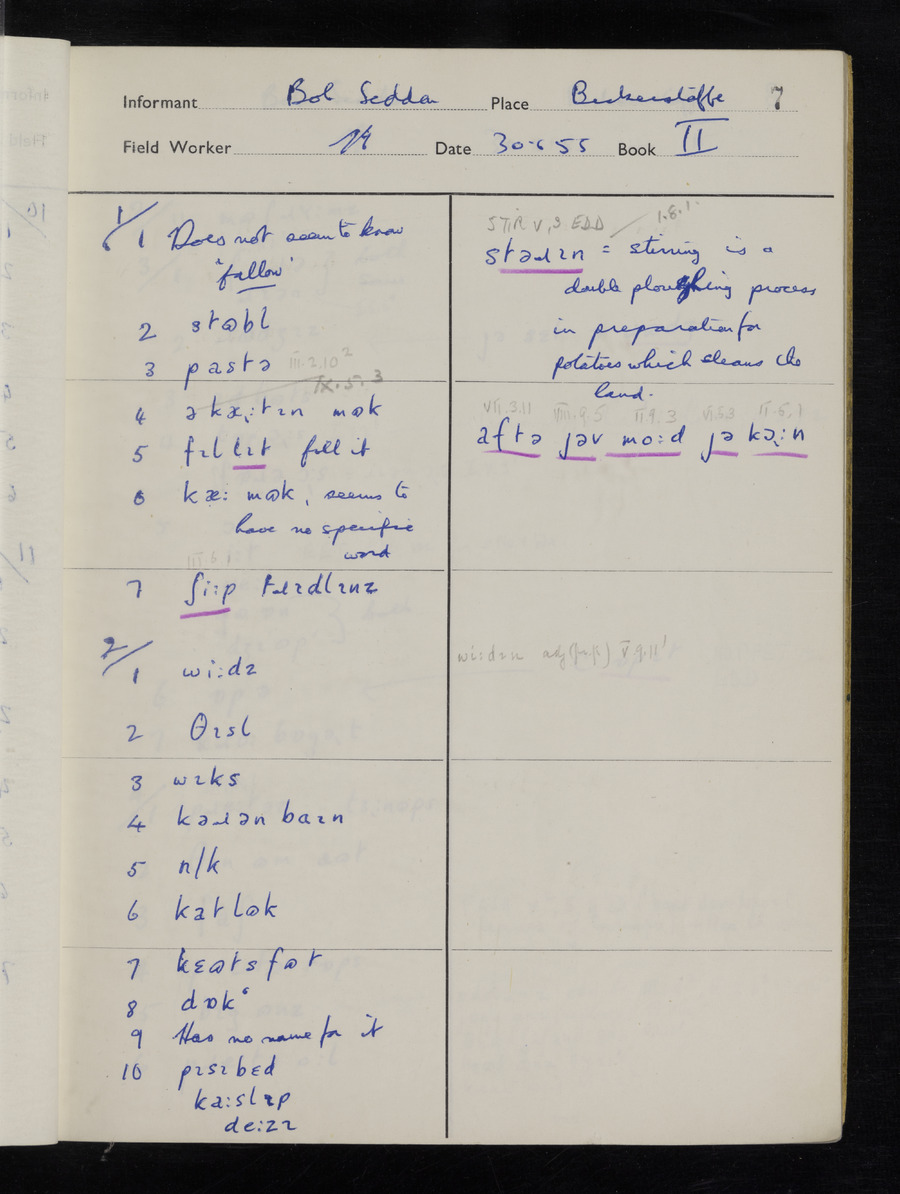 Informant Bob Seddon Place Bickerstaffe 7
Field Worker Date 30.6.55 Book II
1/
1 Does not seem to know
'fallow'
2 stɷbl
3 pastə III.2.10²
IX.5.3
4 mɷk
5 fɪl ɪt fill it
6 kæ: mɷk, seems to
have no specific
word
7 ʃi:p
2/
1 wi:dz
2 θɪsl
3 wɪks
4 kəɹən baɪn
5 n/k
6 katlɷk
7 kɛɷtsfɷt
8 dɒk
9 Has no name for it
10 pɪsɪbɛd
ka:slɪp
de:zɪ
STIR v, 9 EDD 1.8.1.
stəɹɪn = stirring is a
double ploughing process
in preparation for
potatoes which cleans the
land.
VII.3.11 VIII.9.5 II 9.3 VI.5.3 II.6.1
aftə jəv mo:d jə
wi:dɪn adj V.9.11